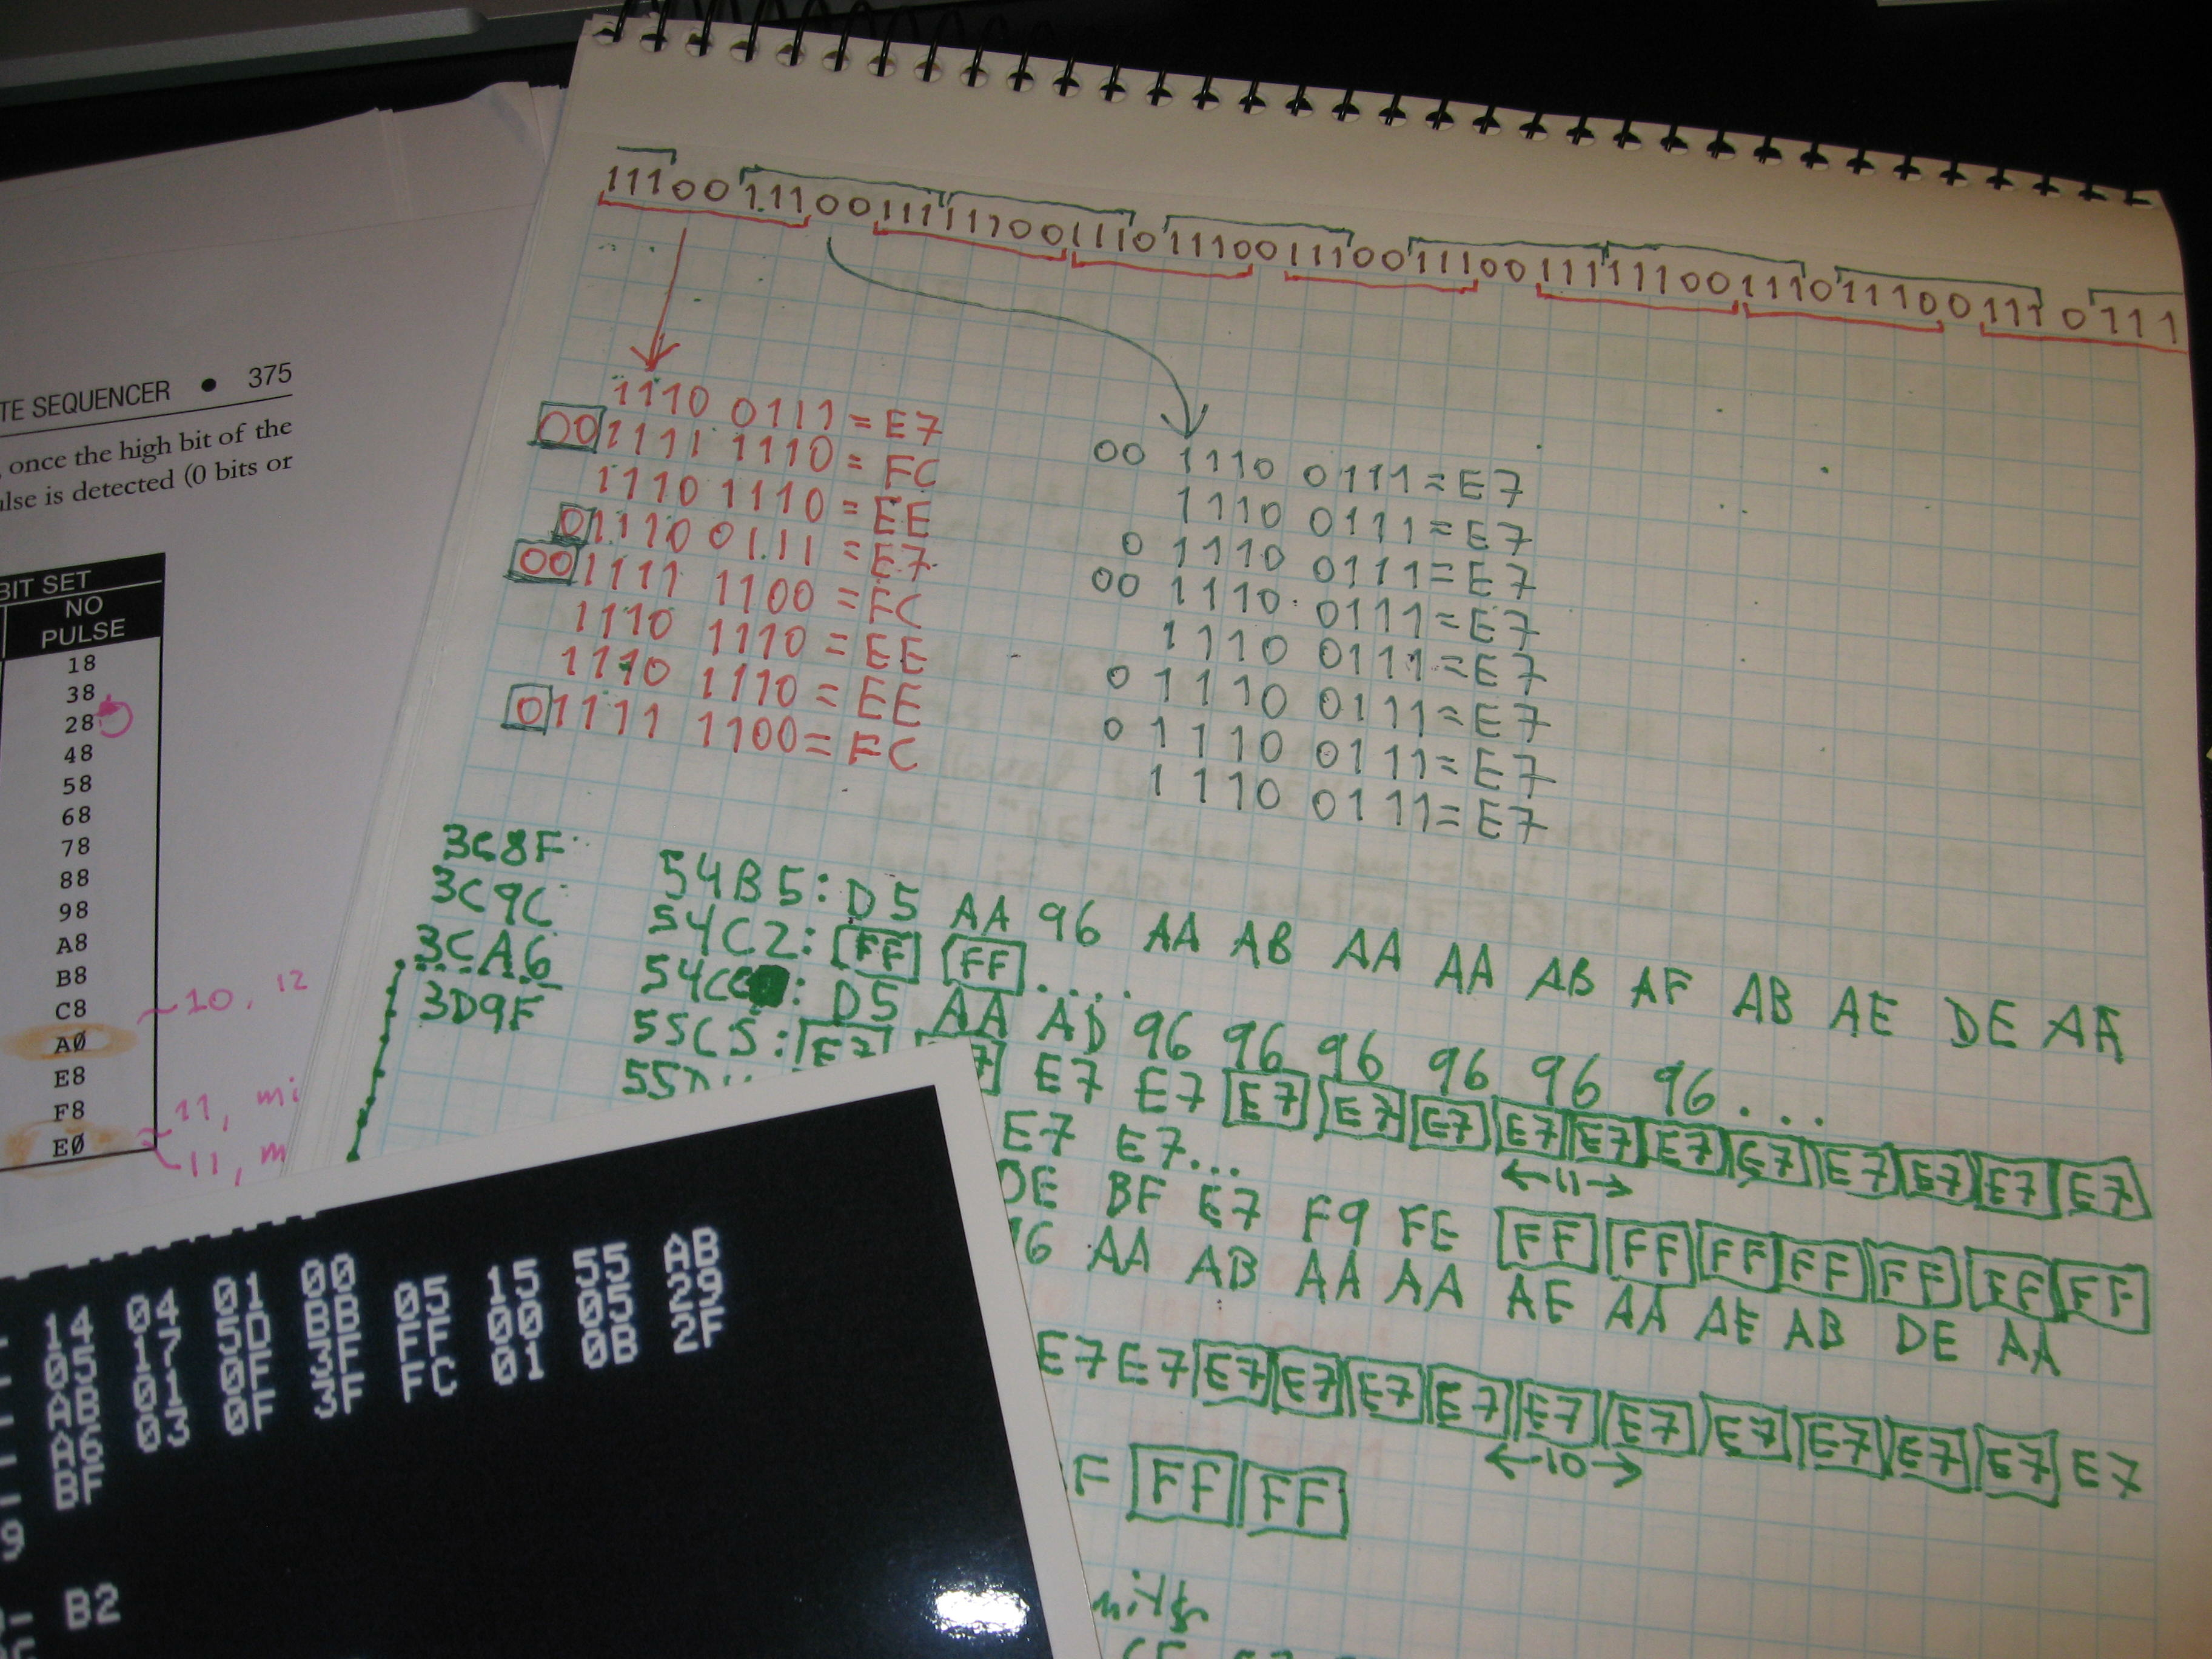 11100111001111110011101110011100111001111110011101110011 10111
1110 0111 = E7
001111 1110 = FC
1110 1110 = EE
01110 0111 = E7
001111 1100 = FC
1110 1110 = EE
1110 1110 = EE
01111 1100 = FC
00 1110 0111 = E7
1110 0111 = E7
0 1110 0111 = E7
00 1110 0111 = E7
1110 0111 = E7
0 1110 0111 = E7
0 1110 0111 = E7
1110 0111 = E7
3C8F
3C9C
3CA6
3D9F
54B5: D5 AA 96 AA AB AA AA AB AF AB AE DE AA
54C2: FF FF ....
54C : D5 AA AD 96 96 96 96 96 96 ...
55C5: E7 E7 E7 E7 E7 E7 E7 E7 E7 E7 E7 E7 E7 E7
←11→
55D
E7 E7...
DE BF E7 F9 FE FF FF FF FF FF FF FF
96 AA AB AA AA AE AA AE AB DE AA
E7 E7 E7 E7 E7 E7 E7 E7 E7 E7 E7 E7 E7
←10→
F FF FF
TE SEQUENCER • 375
, once the high bit of the
ulse is detected (0 bits or
BIT SET
NO
PULSE
18
38
28
48
58
68
78
88
98
A8
B8
C8
A0
E8
F8
E0
10, 12
11, mi
11, m
14 04 01 00 05 15 55 AB
05 17 5D BB FF 00 05 29
AB 01 0F 3F FC 01 0B 2F
A6 03 0F 3F
BF
9
- B2